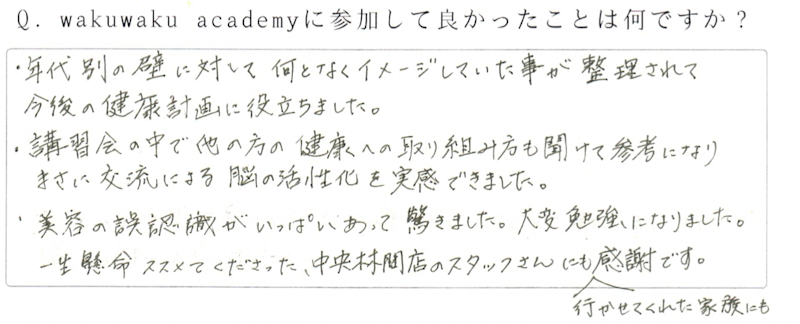 Q. wakuwaku academyに参加して良かったことは何ですか？
・年代別の壁に対して 何となくイメージしていた事が 整理されて
今後の健康計画に役立ちました。
・講習会の中で他の方の 健康への取り組み方も聞けて参考になり
まさに 交流による 脳の活性化を実感できました。
・美容の誤認識がいっぱいあって 驚きました。大変勉強になりました。
一生懸命 ススメてくださった、中央林間店のスタッフさん にも感謝です。
行かせてくれた家族にも